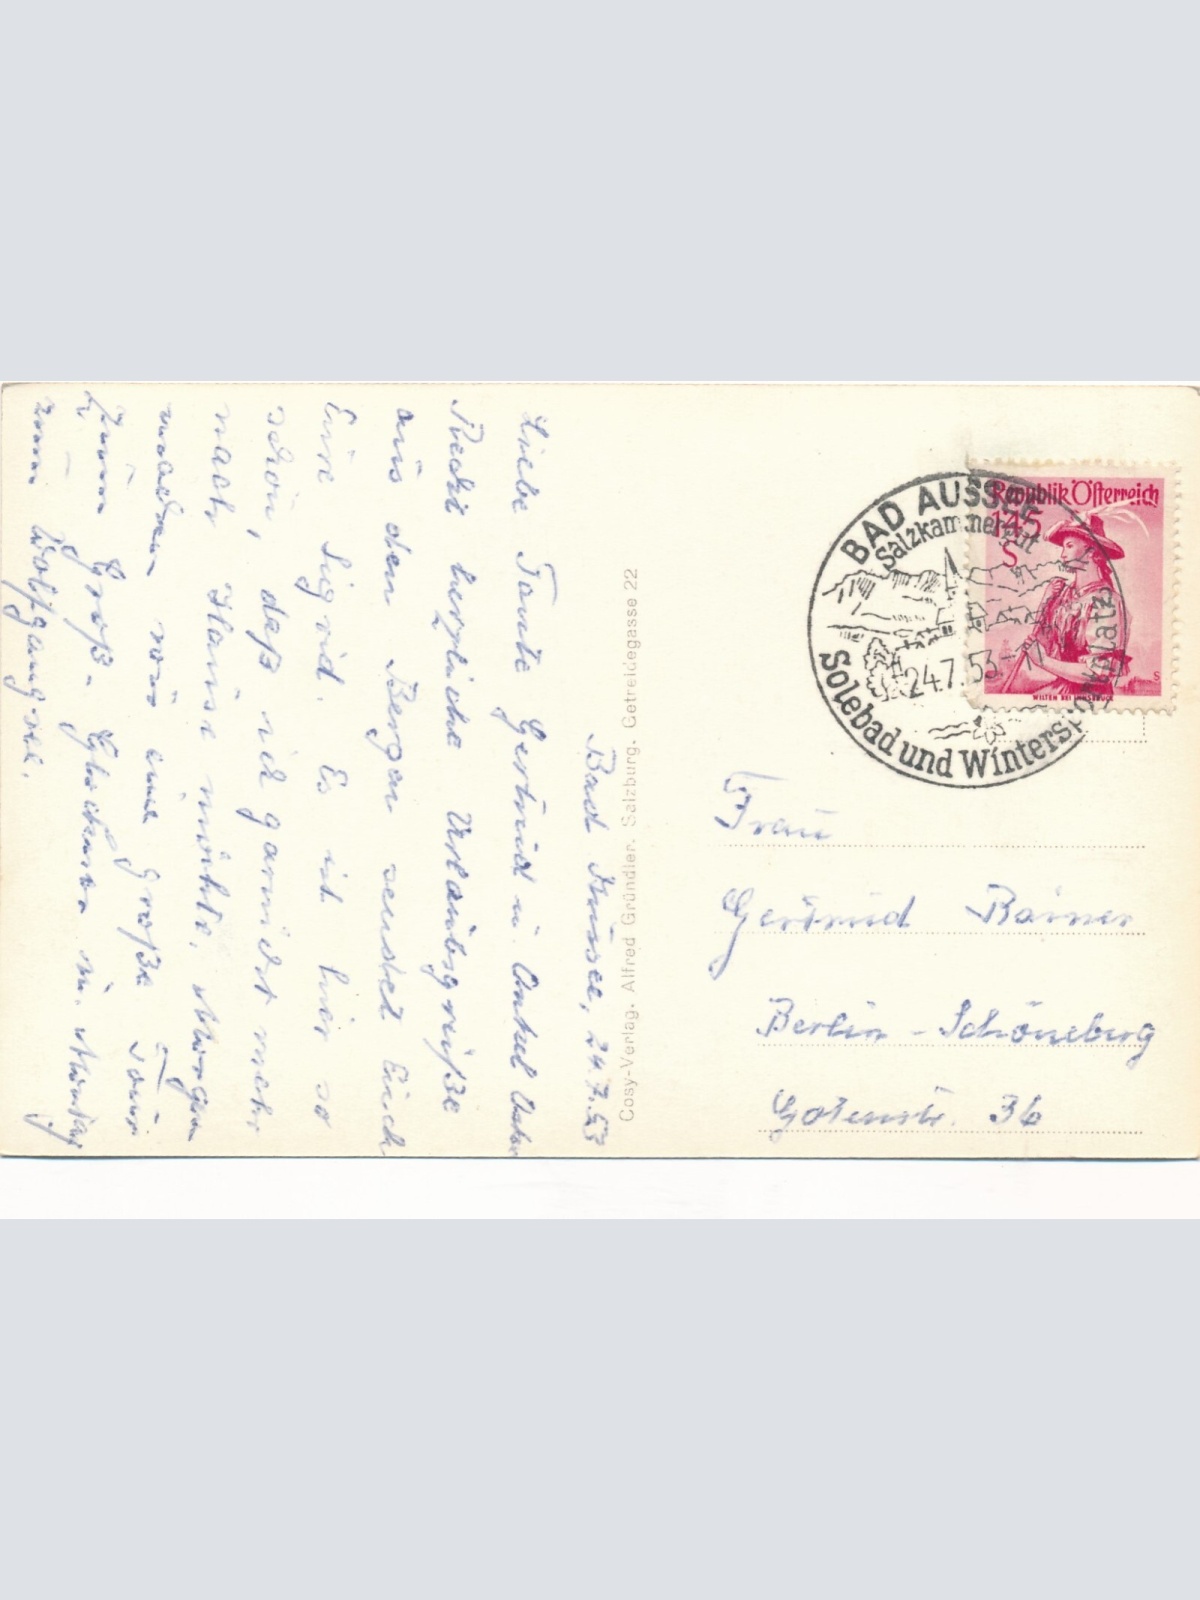 Bad Aussee, 24.7.53
Liebe Tante Gertrud u. Onkel
Recht herzliche Urlaubsgrüße
aus den Bergen sendet Euch
Eure Sigrid. Es ist hier so
schön, daß ich garnicht mehr
nach Hause möchte. Morgen
machen wir eine große Tour
zum Groß-Glockner u. Montag
zum Wolfgangsee.
Cosy-Verlag, Alfred Gründler, Salzburg, Getreidegasse 22
BAD AUSSEE
Salzkammergut
24.7.53
Solebad und Wintersportplatz
Republik Österreich
1.45
S
WILTEN BEI INNSBRUCK
Frau
Gertrud
Berlin-Schöneberg
Gotenstr. 36